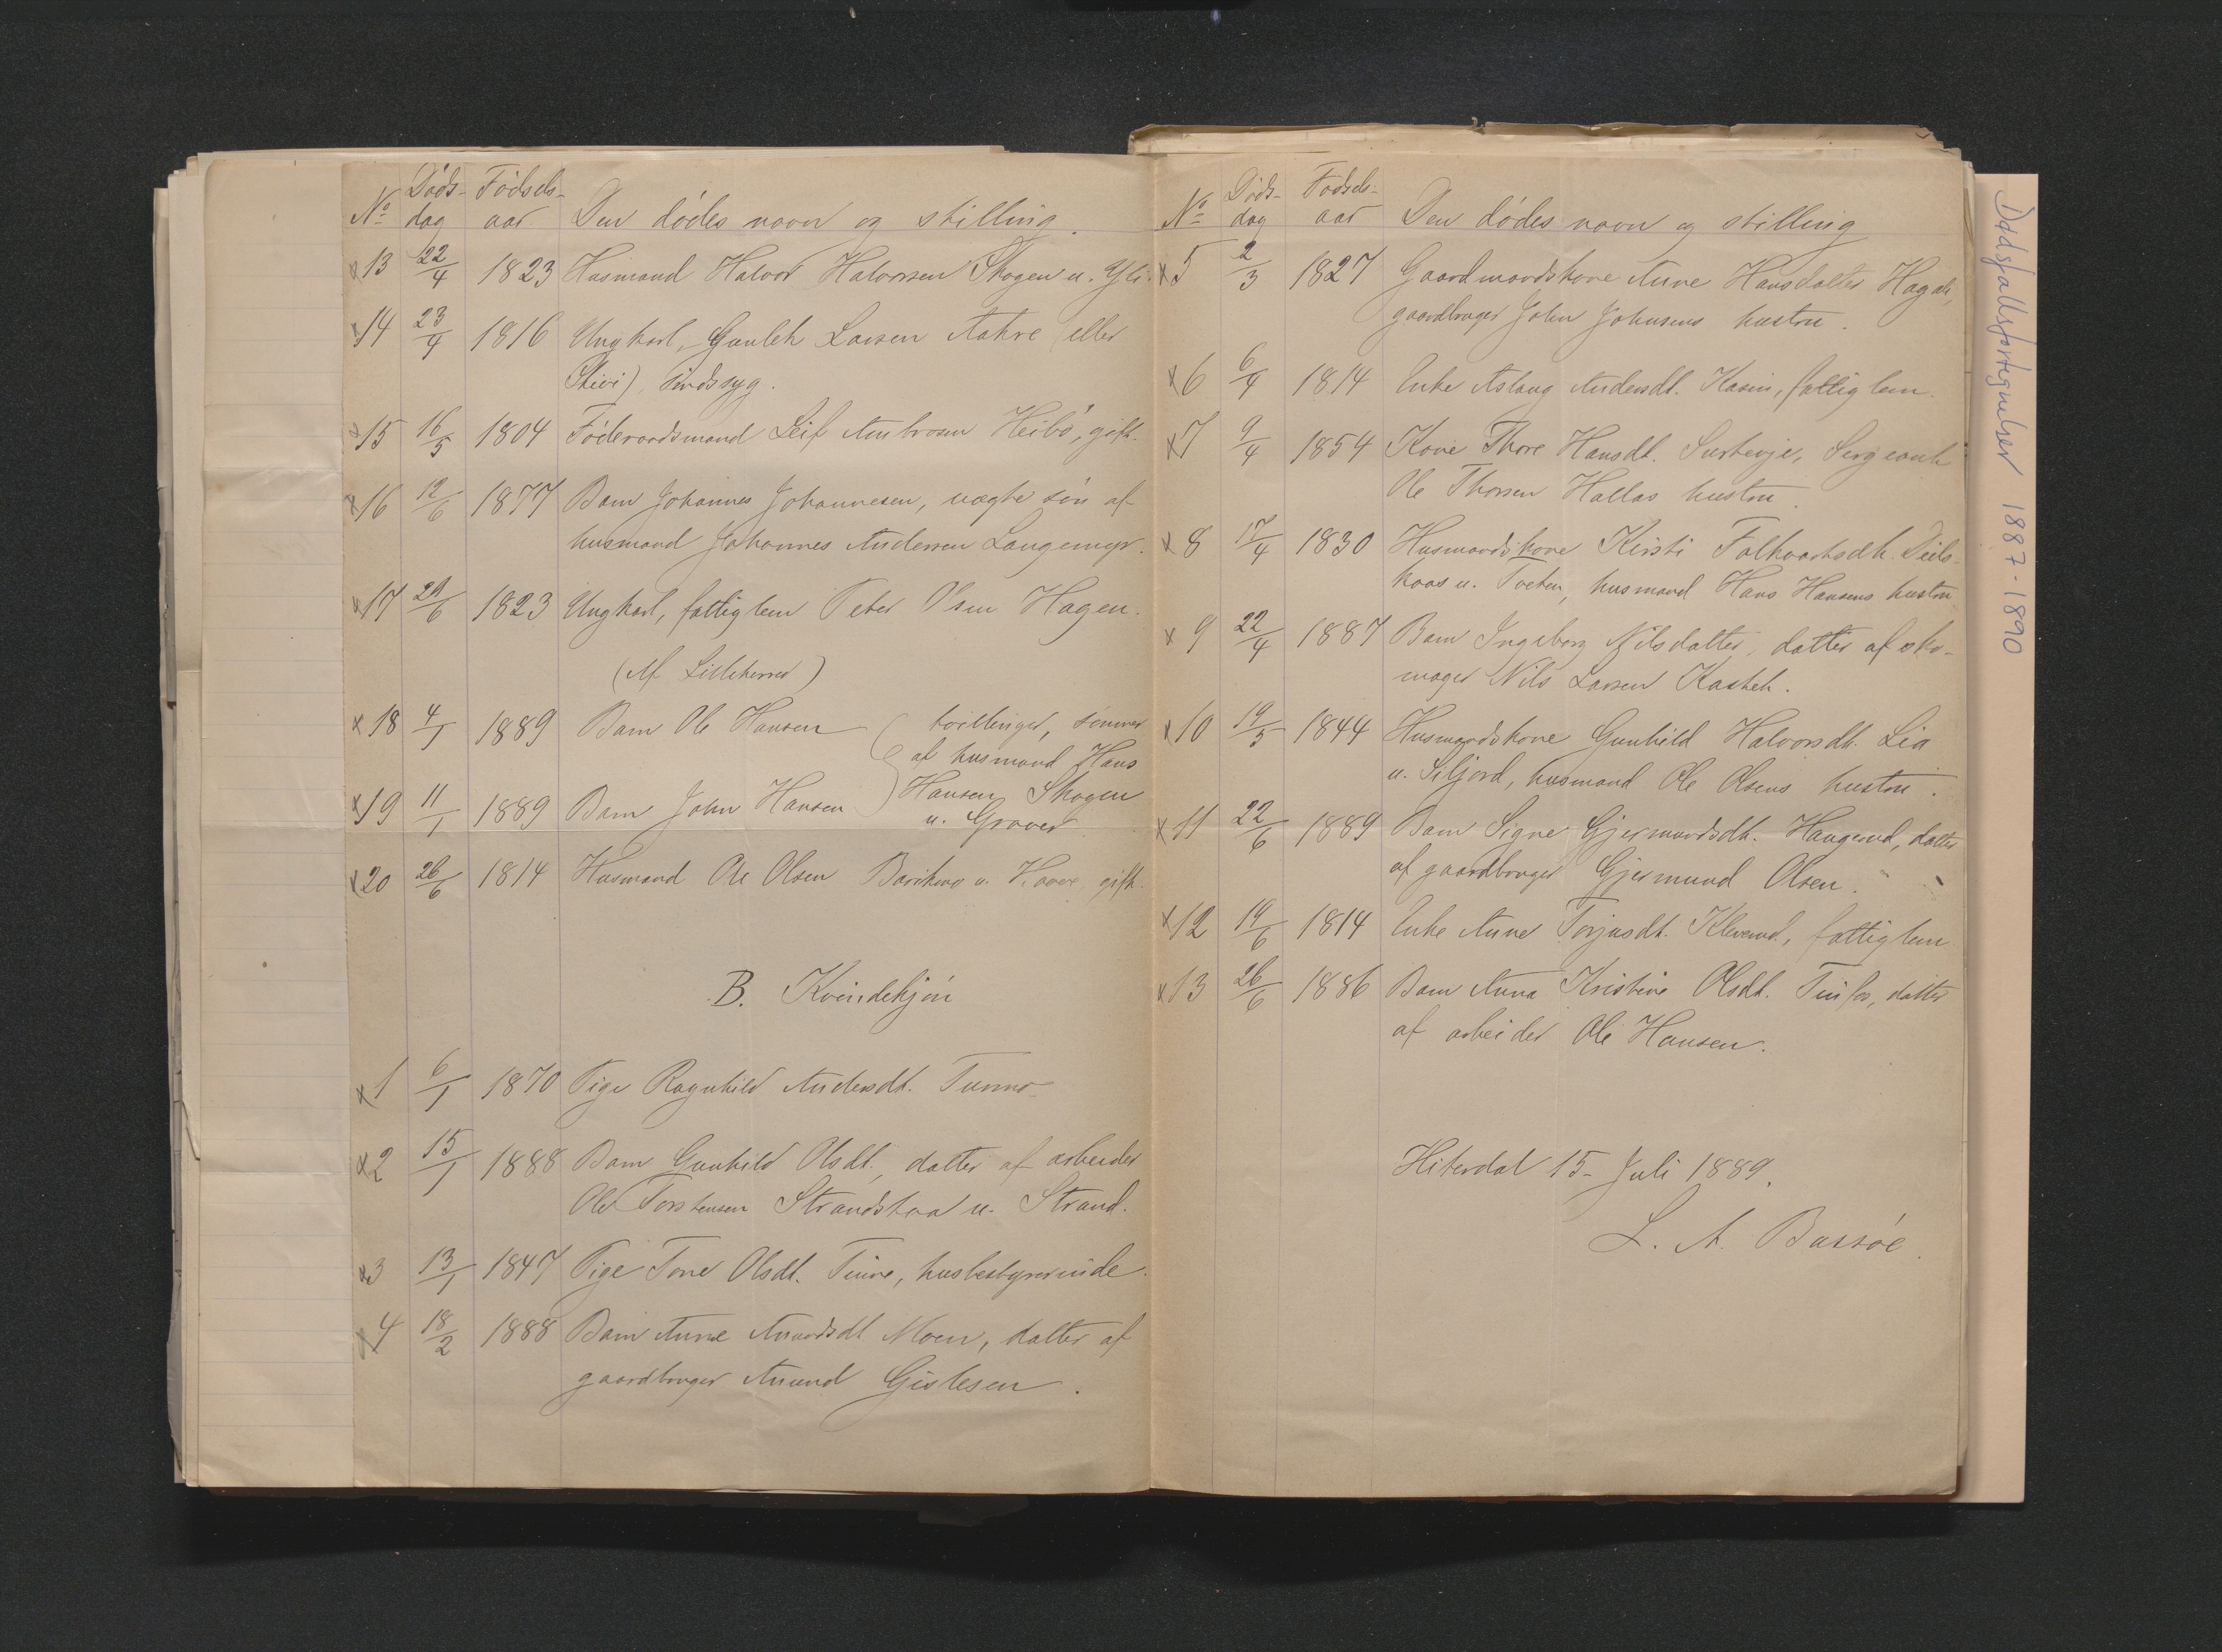 No Döds- Födsels-
dag aar Den dödes navn og stilling.
x13 22/4 1823 Husmand Halvor Halvorsen Skogen u. Yli.
x14 23/4 1816 Ungkarl, Gunlek Larsen Aakre (eller
Skivi), sindssyg.
x15 16/5 1804 Föderaadsmand Leif Ambrosen Heibö, gift.
x16 12/6 1877 Barn Johannes Johannesen, uægte sön af
husmand Johannes Andersen Langemyr.
x17 21/6 1823 Ungkarl, fattiglem Peter Olsen Hagen.
(Af Lilleherred)
x18 4/1 1889 Barn Ole Hansen tvillinger, sönner
af husmand Hans
x19 11/1 1889 Barn John Hansen Hansen Skogen
u. Graver
x20 26/6 1814 Husmand Ole Olsen u. Haave, gift.
B. Kvindekjön
x1 6/1 1870 Pige Ragnhild Andersdt. Tunmo
x2 15/1 1888 Barn Gunhild Olsdt., datter af arbeider
Ole Torstensen Strandstaa u. Strand.
x3 13/1 1847 Pige Tone Olsdt. Tinne, husbestyrerinde.
x4 18/2 1888 Barn Anne Anundsdt Moen, datter af
gaardbruger Anund Gislesen.
No Döds- Födsels-
dag aar Den dödes navn og stilling
x5 2/3 1827 Gaardmandskone Anne Hansdatter Hagen,
gaardbruger John Johnsens hustru.
x6 6/4 1814 Enke Aslaug Andersdt. Kasin, fattiglem.
x7 9/4 1854 Kone Thore Hansdt. Surtevje, Sergeant
Ole Thorsen Hallas hustru.
x8 17/4 1830 Husmandskone Kirsti Folkvartsdt.
u. Tveten, husmand Hans Hansens hustru
x9 22/4 1887 Barn Ingeborg Nilsdatter, datter af sko-
mager Nils Larsen Kasteh.
x10 19/5 1844 Husmandskone Gunhild Halvorsdt. Lia
u. Siljord, husmand Ole Olsens hustru.
x11 22/6 1889 Barn Signe Gjermundsdt. Haugerud, datter
af gaardbruger Gjermund Olsen.
x12 19/6 1814 Enke Anne Torjusdt. Kleverud, fattiglem
x13 26/6 1886 Barn Anna Kristine Olsdt. Tinfos, datter
af arbeider Ole Hansen.
Hiterdal 15- Juli 1889.
L. A. Bassöe.
Dødsfallsfortegnelser 1887-1890